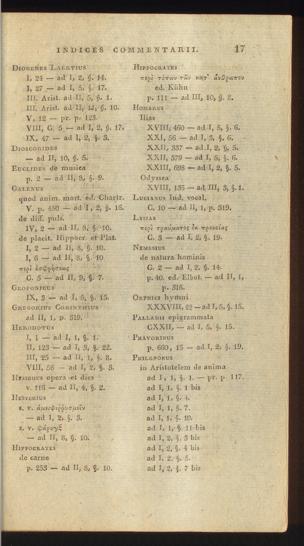 INDICES COMMENTARII. 17
DIOGENES LAERTIUS
I, 24 — ad I, 2, §. 14.
I, 27 — ad I, 5. §. 17.
III. Arist. ad II, 5, §. 1.
III. Arist. ad II, 12, §. 10.
V. 12 — pr. p. 123.
VIII, G. 5 — ad I, 2, §. 17.
IX, 47 — ad I, 2, §. 3.
DIOSCORIDES
— ad II, 10, §. 5.
EUCLIDES de musica
p. 2 — ad II, 8, §. 9.
GALENUS
quod anim. mort. ed. Chariz.
V. p. 450 — ad I, 2, §. 15.
de diff. puls.
IV, 2 — ad II, 8, §. 10.
de placit. Hippocr. et Plat.
I, 2 — ad II, 8, §. 10.
I, 6 — ad II, 8, §. 10
περὶ ὀσφρήσεως
C. 5 — ad II, 9, §. 7.
GEOPONICUS
IX, 3 — ad I, 5, §. 15.
GREGORIUS CORINTHIUS
ad II, 1, p. 319.
HERODOTUS
I, 1 — ad I, 1, §. 1.
II, 123 — ad I, 3, §. 22.
III, 25 — ad II, 1, §. 8.
VIII, 56 — ad I, 2, §. 3.
HESIODUS opera et dies
v. 216 — ad II, 4, §. 2.
HESYCHIUS
s. v.
— ad I, 2, §. 3.
s. v. φάρυγξ
— ad II, 8, §. 10.
HIPPOCRATES
de carne
p. 253 — ad II, 8, §. 10.
HIPPOCRATES
περὶ τόπων τῶν κατ' ἄνθρωπον
ed. Kühn
p. 111 — ad III, 10, §. 2.
HOMERUS
Ilias
XVIII, 460 — ad I, 5, §. 6.
XXI, 56 — ad I, 5, §. 6.
XXII, 337 — ad I, 2, §. 5.
XXII, 579 — ad I, 5, §. 6.
XXIII, 698 — ad I, 2, §. 5.
Odyssea
XVIII, 135 — ad III, 3, §. 1.
LUSIANUS Iud. vocal.
C. 10 — ad II, 1, p. 319.
LYSIAS
περὶ τραύματος ἐκ προνοίας
C. 3 — ad I, 2, §. 19.
NEMESIUS
de natura hominis
C. 2 — ad I, 2, §. 14.
p. 40. ed. Elbst. — ad II, 1,
p. 316.
ORPHEIS hymni
XXXVIII, 22 — ad I, 5, §. 15.
PALLADIS epigrammata
CXXII, — ad I, 5, §. 15.
PHAVORINUS
p. 660, 15 — ad I, 2, §. 19.
PHILOPONUS
in Aristotelem de anima
ad I, 1, §. 1. — pr. p. 117.
ad I, 1, §. 1 bis
ad I, 1, §. 4.
ad I, 1, §. 7.
ad I, 1, §. 10.
ad I, 1, §. 11 bis
ad I, 2, §. 3 bis
ad I, 2, §. 4 bis
ad I, 2, §. 5.
ad I, 2, §. 7 bis